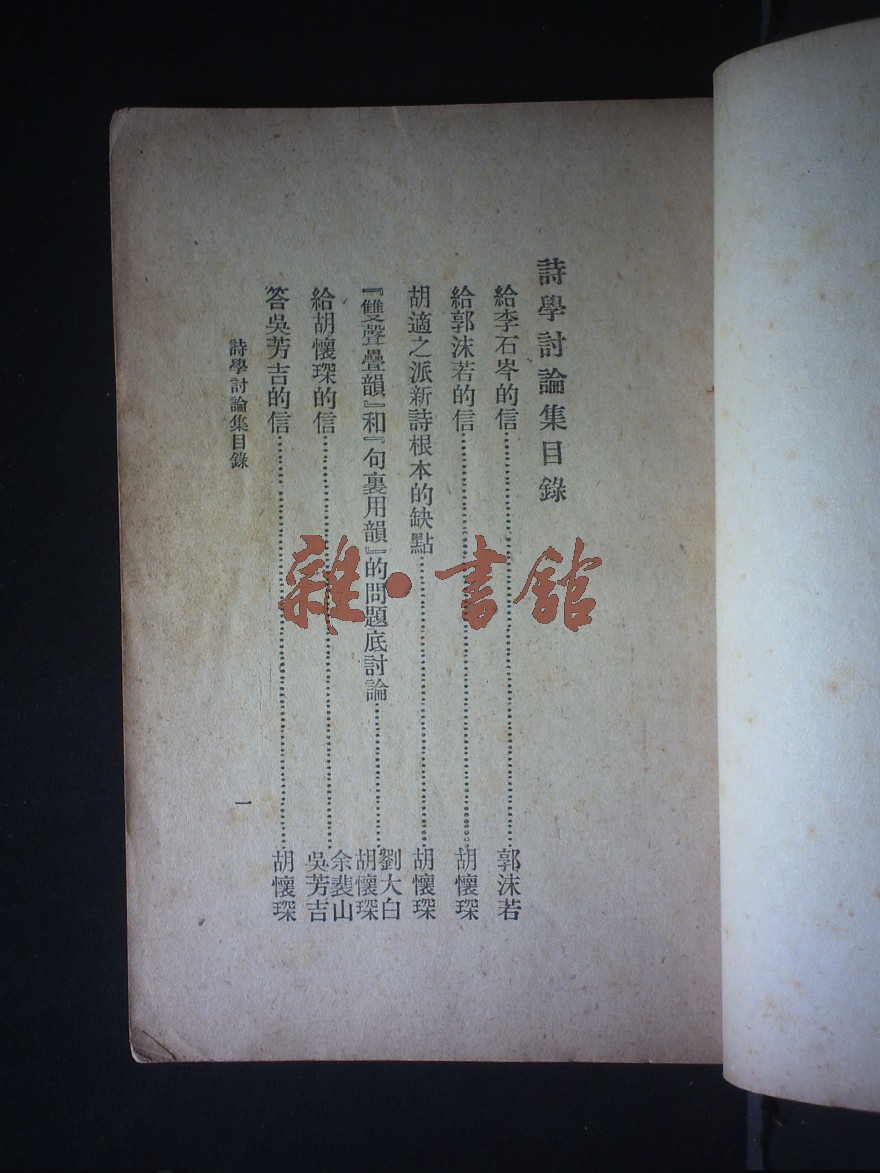 詩學討論集目錄
給李石岑的信……郭沫若
給郭沫若的信……胡懷琛
胡適之派新詩根本的缺點……胡懷琛
『雙聲疊韻』和『句裏用韻』的問題底討論……劉大白 胡懷琛 余裴山
給胡懷琛的信……吳芳吉
答吳芳吉的信……胡懷琛
詩學討論集目錄
一
雜·書館